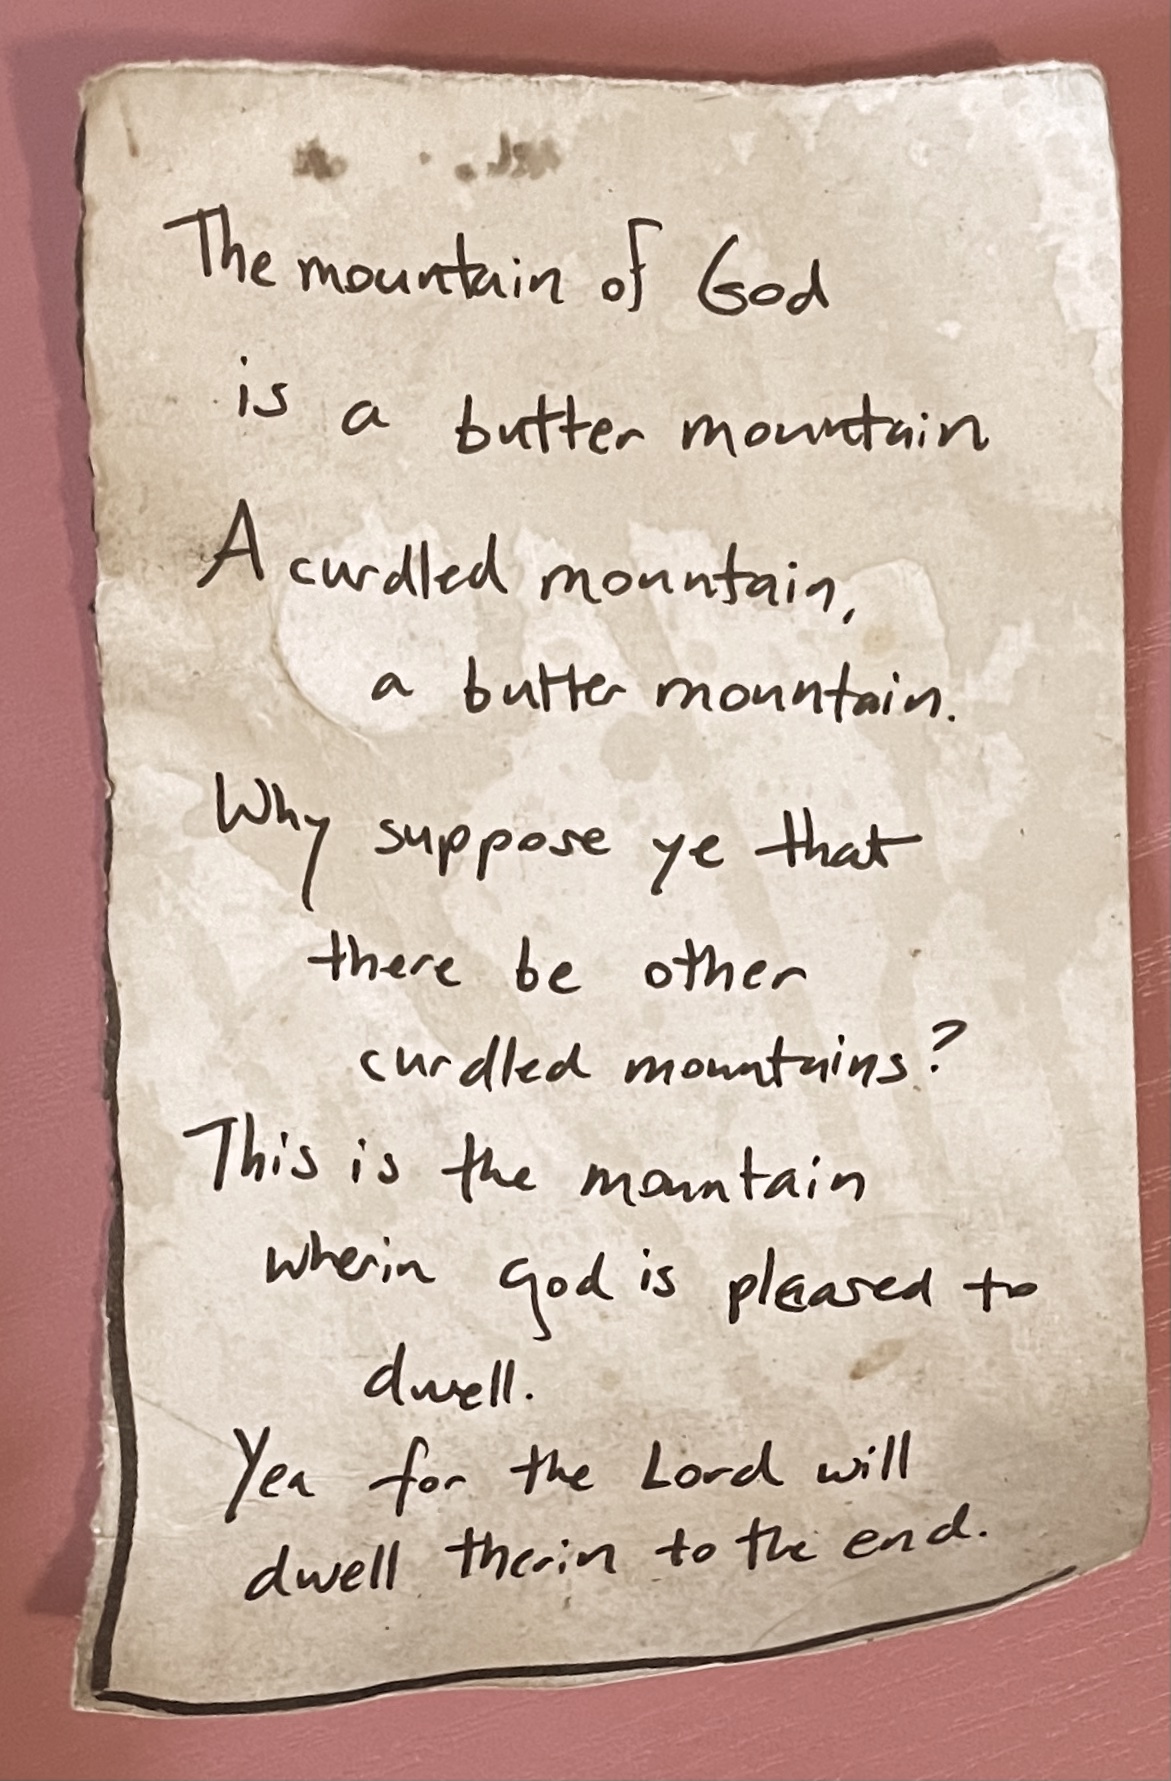 The mountain of God
is a butter mountain
A curdled mountain,
a butter mountain.
Why suppose ye that
there be other
curdled mountains?
This is the mountain
wherin god is pleased to
dwell.
Yea for the Lord will
dwell therin to the end.